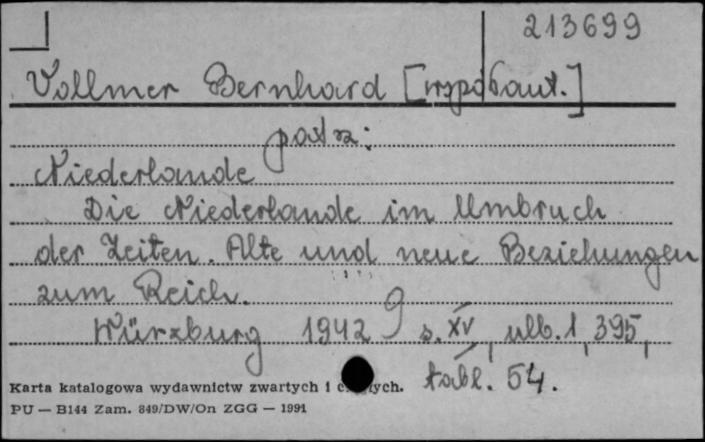 213699
Vollmer Bernhard [współaut.]
patrz:
Niederlande
Die Niederlande im Umbruch
der Zeiten. Alte und neue Beziehungen
zum Reich.
Würzburg 1942 s. XV, nlb. 1, 395,
tabl. 54.
Karta katalogowa wydawnictw zwartych i
PU — B144 Zam. 849/DW/On ZGG — 1991